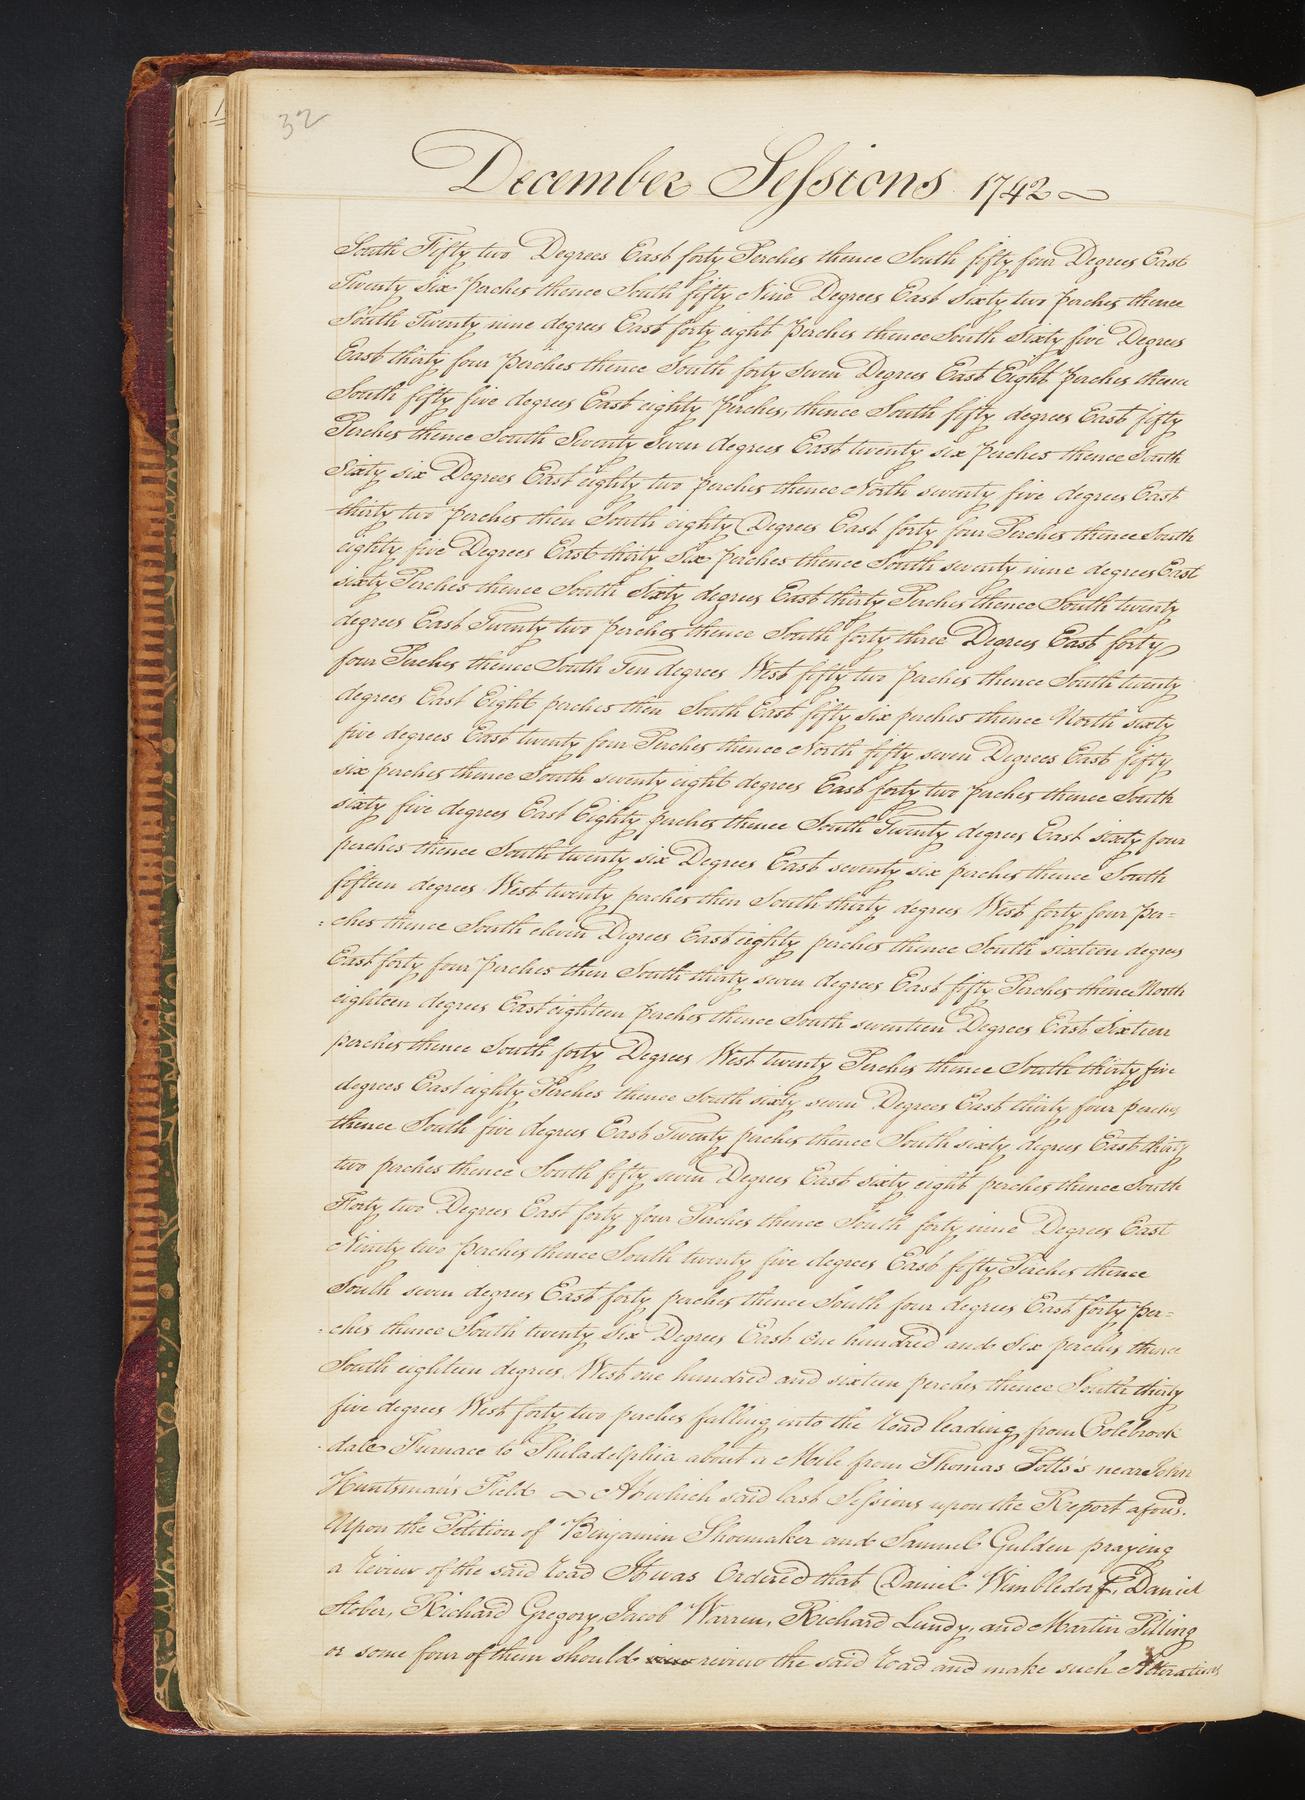 32
December Sessions 1742
South Fifty two Degrees East forty Perches thence South fifty four Degrees East
Twenty Six perches thence South fifty Nine Degrees East Sixty two perches thence
South Twenty nine degrees East forty eight perches thence South Sixty five Degrees
East thirty four perches thence South forty Seven Degrees East Eight perches thence
South fifty five degrees East eighty perches, thence South fifty degrees East fifty
Perches thence South Seventy Seven degrees East twenty six perches thence South
Sixty six Degrees East eighty two perches thence North seventy five degrees East
thirty two perches then South eighty Degrees East forty four Perches thence South
eighty five Degrees East thirty Six perches thence South seventy nine degrees East
sixty Perches thence South Sixty degrees East thirty Perches thence South twenty
degrees East Twenty two perches thence South forty three Degrees East forty
four Perches thence South Ten degrees West fifty two perches thence South twenty
degrees East Eight perches then South East fifty six perches thence North sixty
five degrees East twenty four Perches thence North fifty seven Degrees East fifty
six perches thence South seventy eight degrees East forty two perches thence South
sixty five degrees East Eighty perches thence South Twenty degrees East sixty four
perches thence South twenty six Degrees East seventy six perches thence South
fifteen degrees West twenty perches then South thirty degrees West forty four per=
=ches thence South eleven Degrees East eighty perches thence South sixteen degrees
East forty four perches then South thirty seven degrees East fifty Perches thence North
eighteen degrees East eighteen perches thence South seventeen Degrees East Sixteen
perches thence South forty Degrees West twenty Perches thence South thirty five
degrees East eighty Perches thence South sixty seven Degrees East thirty four perches
thence South five degrees East Twenty perches thence South sixty degrees East thirty
two perches thence South fifty seven Degrees East sixty eight perches thence South
Forty two Degrees East forty four Perches thence South forty nine Degrees East
Ninety two perches thence South twenty five degrees East fifty Perches thence
South seven degrees East forty perches thence South four degrees East forty per=
=ches thence South twenty Six Degrees East one hundred and Six perches thence
South eighteen degrees West one hundred and sixteen perches thence South thirty
five degrees West forty two perches falling into the road leading from Colebrook
dale Furnace to Philadelphia about a Mile from Thomas Potts's near John
Huntsman's Field ~ At which said last Sessions upon the Report afores.d
Upon the Petition of Benjamin Shoemaker and Samuel Gulden praying
a review of the said road It was Ordered that Daniel Wimbledorf, Daniel
Stober, Richard Gregory, Jacob Warren, Richard Lundy, and Martin Pilling
or some four of them should view review the said road and make such Alterations